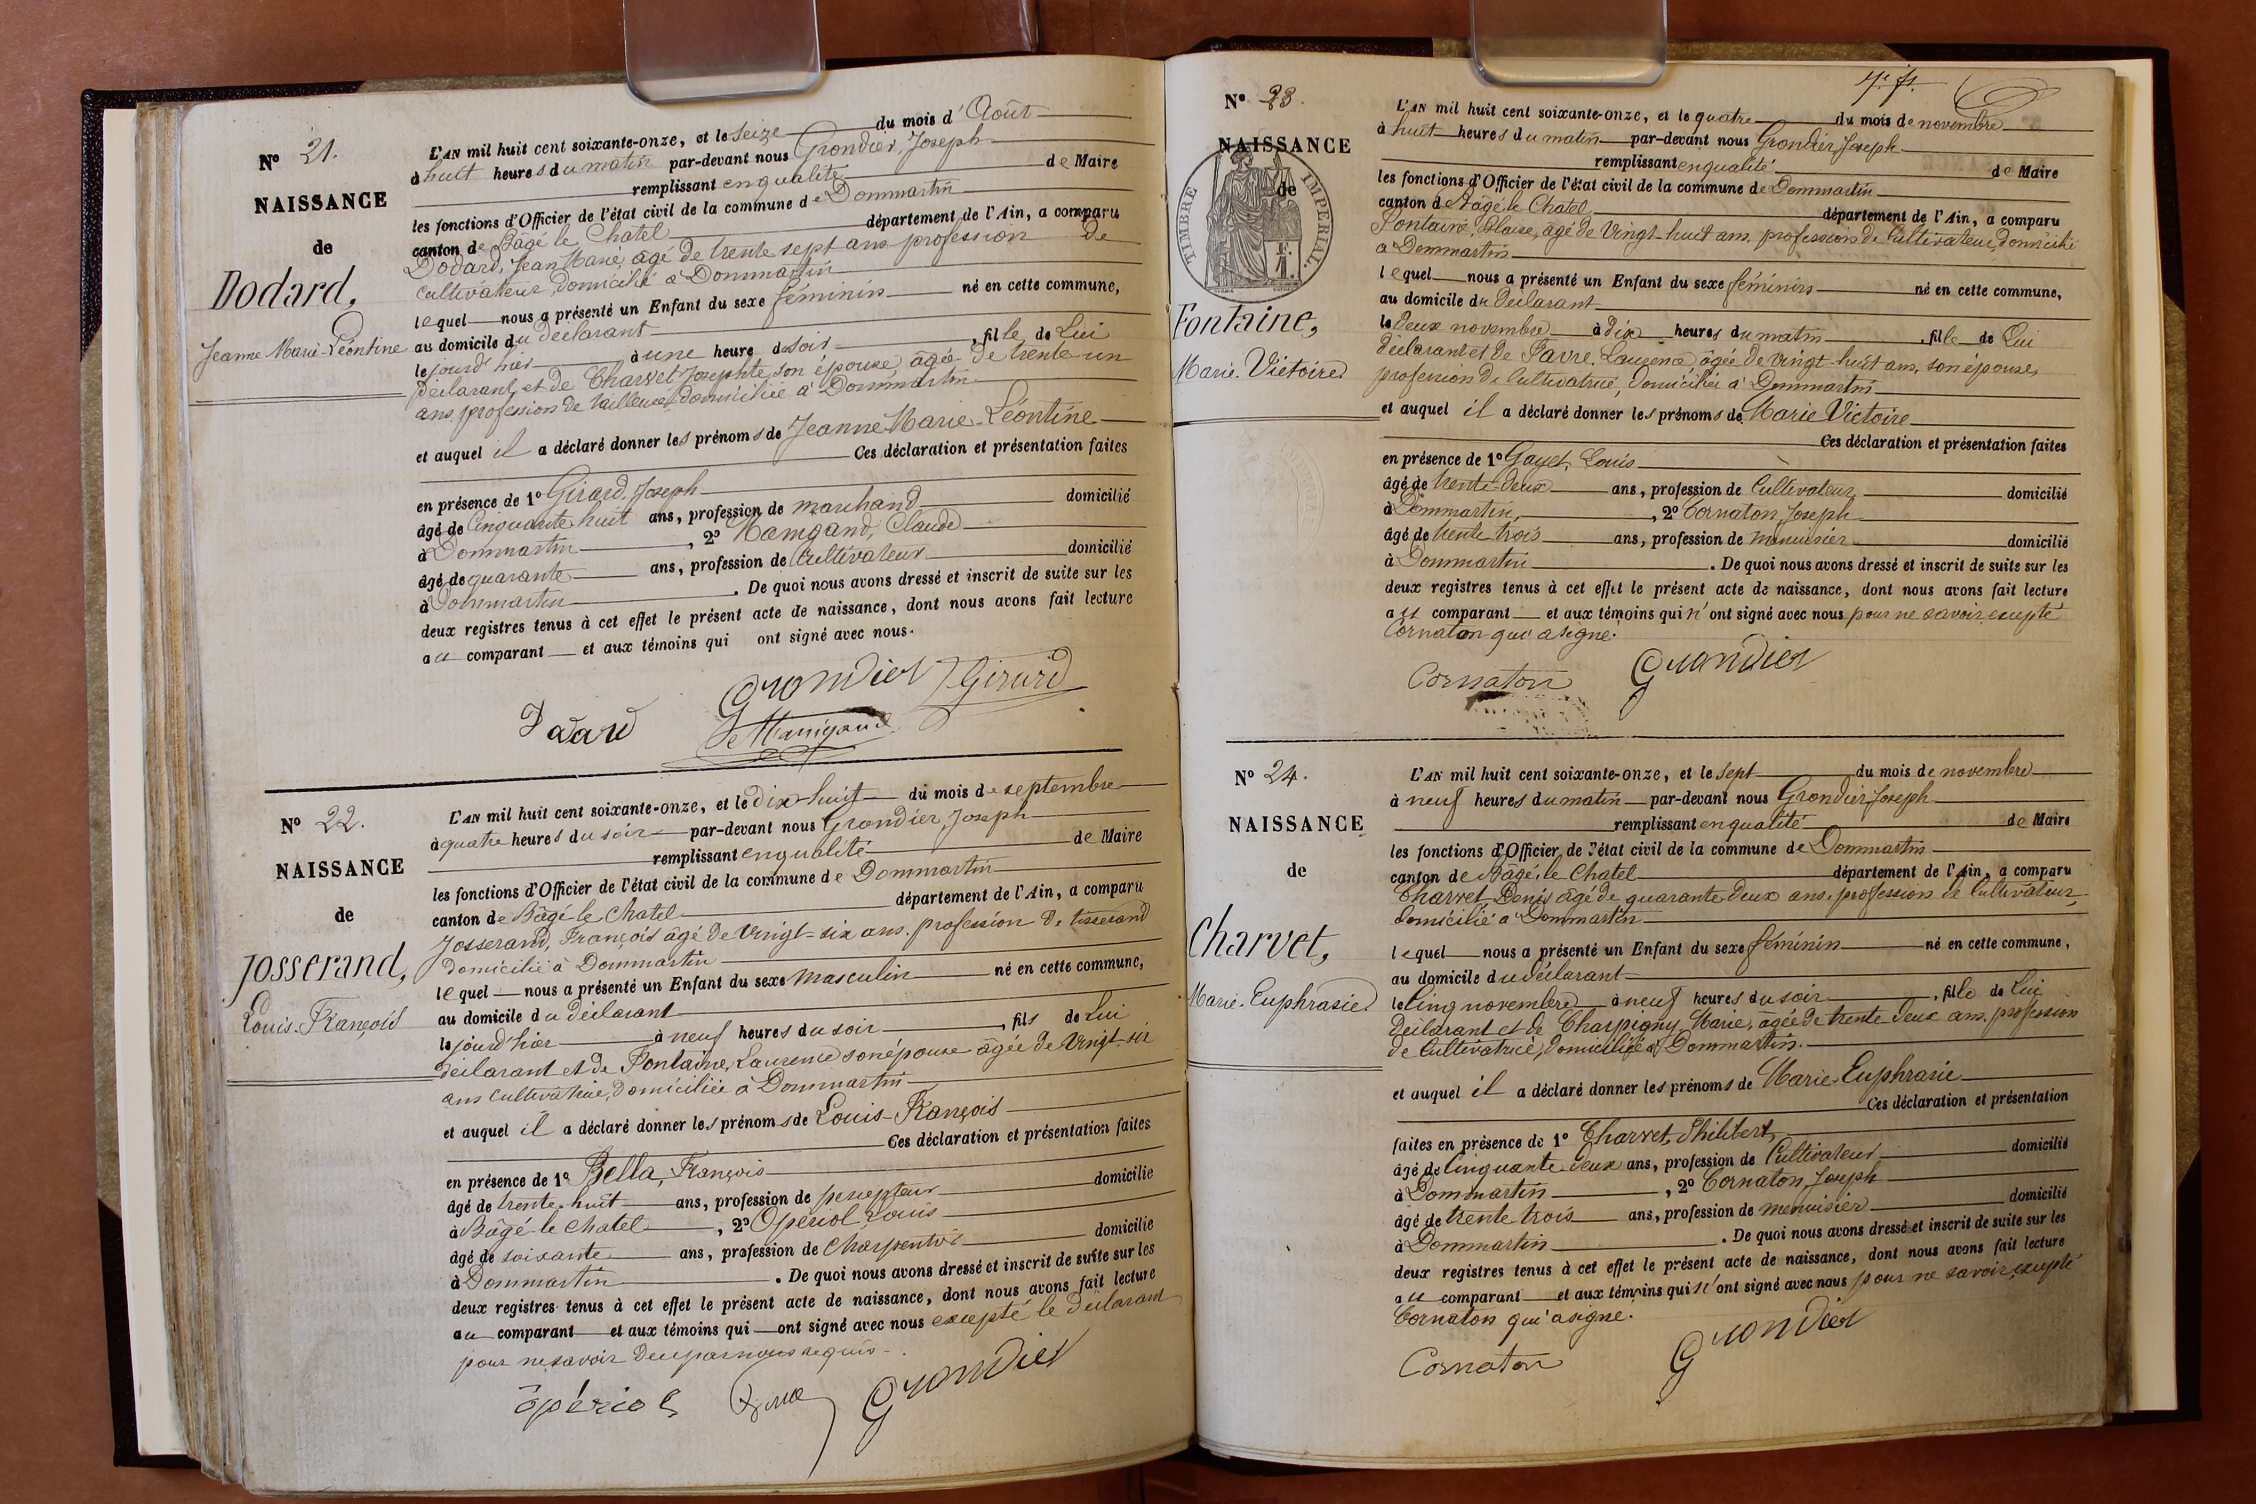 N° 21.
NAISSANCE
de
Dodard,
Jeanne Marie-Léontine
L'AN mil huit cent soixante-onze, et le seize du mois d'Août
à huit heures du matin par-devant nous Grondier, Joseph
remplissant en qualité de Maire
les fonctions d'Officier de l'état civil de la commune de Dommartin
canton de Bâgé le Chatel département de l'Ain, a comparu
Dodard, Jean Marie, âgé de trente sept ans profession de
cultivateur, domicilié à Dommartin
lequel nous a présenté un Enfant du sexe féminin né en cette commune,
au domicile du déclarant
le jourd'hier à une heure du soir, fille de Lui
déclarant, et de Charvet Josephte, son épouse, âgée de trente-un
ans, profession de tailleuse, domiciliée à Dommartin
et auquel il a déclaré donner les prénoms de Jeanne Marie-Léontine
Ces déclaration et présentation faites
en présence de 1° Girard, Joseph
âgé de Cinquante huit ans, profession de marchand domicilié
à Dommartin, 2° Mamgand, Claude
âgé de quarante ans, profession de Cultivateur domicilié
à Dommartin. De quoi nous avons dressé et inscrit de suite sur les
deux registres tenus à cet effet le présent acte de naissance, dont nous avons fait lecture
au comparant et aux témoins qui ont signé avec nous.
Grondier JGirard
Dodard
N° 22.
NAISSANCE
de
Josserand,
Louis-François
L'AN mil huit cent soixante-onze, et le dix-huit du mois de septembre
à quatre heures du soir par-devant nous Grondier, Joseph
remplissant en qualité de Maire
les fonctions d'Officier de l'état civil de la commune de Dommartin
canton de Bâgé le Chatel département de l'Ain, a comparu
Josserand, François âgé de Vingt-six ans. profession de tisserand
domicilié à Dommartin
lequel nous a présenté un Enfant du sexe masculin né en cette commune,
au domicile du déclarant
le jourd'hier à neuf heures du soir, fils de Lui
déclarant et de Fontaine, Laurence son épouse âgée de Vingt-six
ans cultivatrice, domiciliée à Dommartin
et auquel il a déclaré donner les prénoms de Louis-François
Ces déclaration et présentation faites
en présence de 1° Bella, François
âgé de trente-huit ans, profession de percepteur domicilié
à Bâgé-le Chatel, 2° Opériol Louis
âgé de soixante ans, profession de Charpentier domicilié
à Dommartin. De quoi nous avons dressé et inscrit de suite sur les
deux registres tenus à cet effet le présent acte de naissance, dont nous avons fait lecture
au comparant et aux témoins qui ont signé avec nous excepté le déclarant
pour ne savoir de ce par nous requis.
Opériol Grondier
N° 23.
NAISSANCE
de
TIMBRE IMPERIAL.
1 F.
Fontaine,
Marie-Victoire
L'AN mil huit cent soixante-onze, et le quatre du mois de novembre
à huit heures du matin par-devant nous Grondier, Joseph
remplissant en qualité de Maire
les fonctions d'Officier de l'état civil de la commune de Dommartin
canton de Bâgé le Chatel département de l'Ain, a comparu
Fontaine, Blaise, âgé de Vingt-huit ans, profession de Cultivateur, domicilié
à Dommartin
lequel nous a présenté un Enfant du sexe féminin né en cette commune,
au domicile du déclarant
le deux novembre à dix heures du matin, fille de Lui
déclarant et de Favre. Laurence, âgée de vingt-huit ans, son épouse,
profession de Cultivatrice, domiciliée à Dommartin
et auquel il a déclaré donner les prénoms de Marie Victoire
Ces déclaration et présentation faites
en présence de 1° Gayet, Louis
âgé de trente-deux ans, profession de Cultivateur domicilié
à Dommartin, 2° Cornaton, Joseph
âgé de trente trois ans, profession de menuisier domicilié
à Dommartin. De quoi nous avons dressé et inscrit de suite sur les
deux registres tenus à cet effet le présent acte de naissance, dont nous avons fait lecture
au comparant et aux témoins qui n'ont signé avec nous pour ne savoir, excepté
Cornaton qui a signé.
Cornaton Grondier
N° 24.
NAISSANCE
de
Charvet,
Marie-Euphrasie
L'AN mil huit cent soixante-onze, et le sept du mois de novembre
à neuf heures du matin par-devant nous Grondier, Joseph
remplissant en qualité de Maire
les fonctions d'Officier de l'état civil de la commune de Dommartin
canton de Bâgé, le Chatel département de l'Ain, a comparu
Charvet, Denis, âgé de quarante deux ans, profession de Cultivateur,
domicilié à Dommartin
lequel nous a présenté un Enfant du sexe féminin né en cette commune,
au domicile du déclarant
le Cinq novembre à neuf heures du soir, fille de Lui
déclarant et de Charpigny Marie, âgée de trente deux ans, profession
de Cultivatrice, domiciliée à Dommartin.
et auquel il a déclaré donner les prénoms de Marie-Euphrasie
Ces déclaration et présentation
faites en présence de 1° Charvet, Philibert,
âgé de Cinquante deux ans, profession de Cultivateur domicilié
à Dommartin, 2° Cornaton, Joseph
âgé de trente trois ans, profession de menuisier domicilié
à Dommartin. De quoi nous avons dressé et inscrit de suite sur les
deux registres tenus à cet effet le présent acte de naissance, dont nous avons fait lecture
au comparant et aux témoins qui n'ont signé avec nous pour ne savoir, excepté
Cornaton qui a signé.
Cornaton Grondier